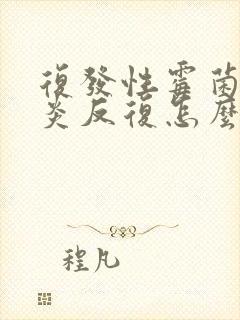 復發性霉菌
炎反復怎麼
程凡